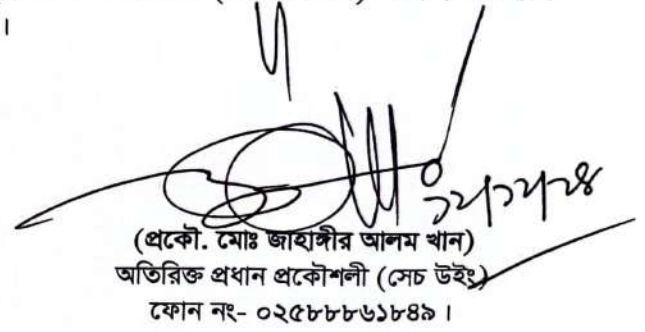 ।
(প্রকৌ. মোঃ জাহাঙ্গীর আলম খান)
অতিরিক্ত প্রধান প্রকৌশলী (সেচ উইং)
ফোন নং- ০২৫৮৮৮৬১৮৪৯ ।